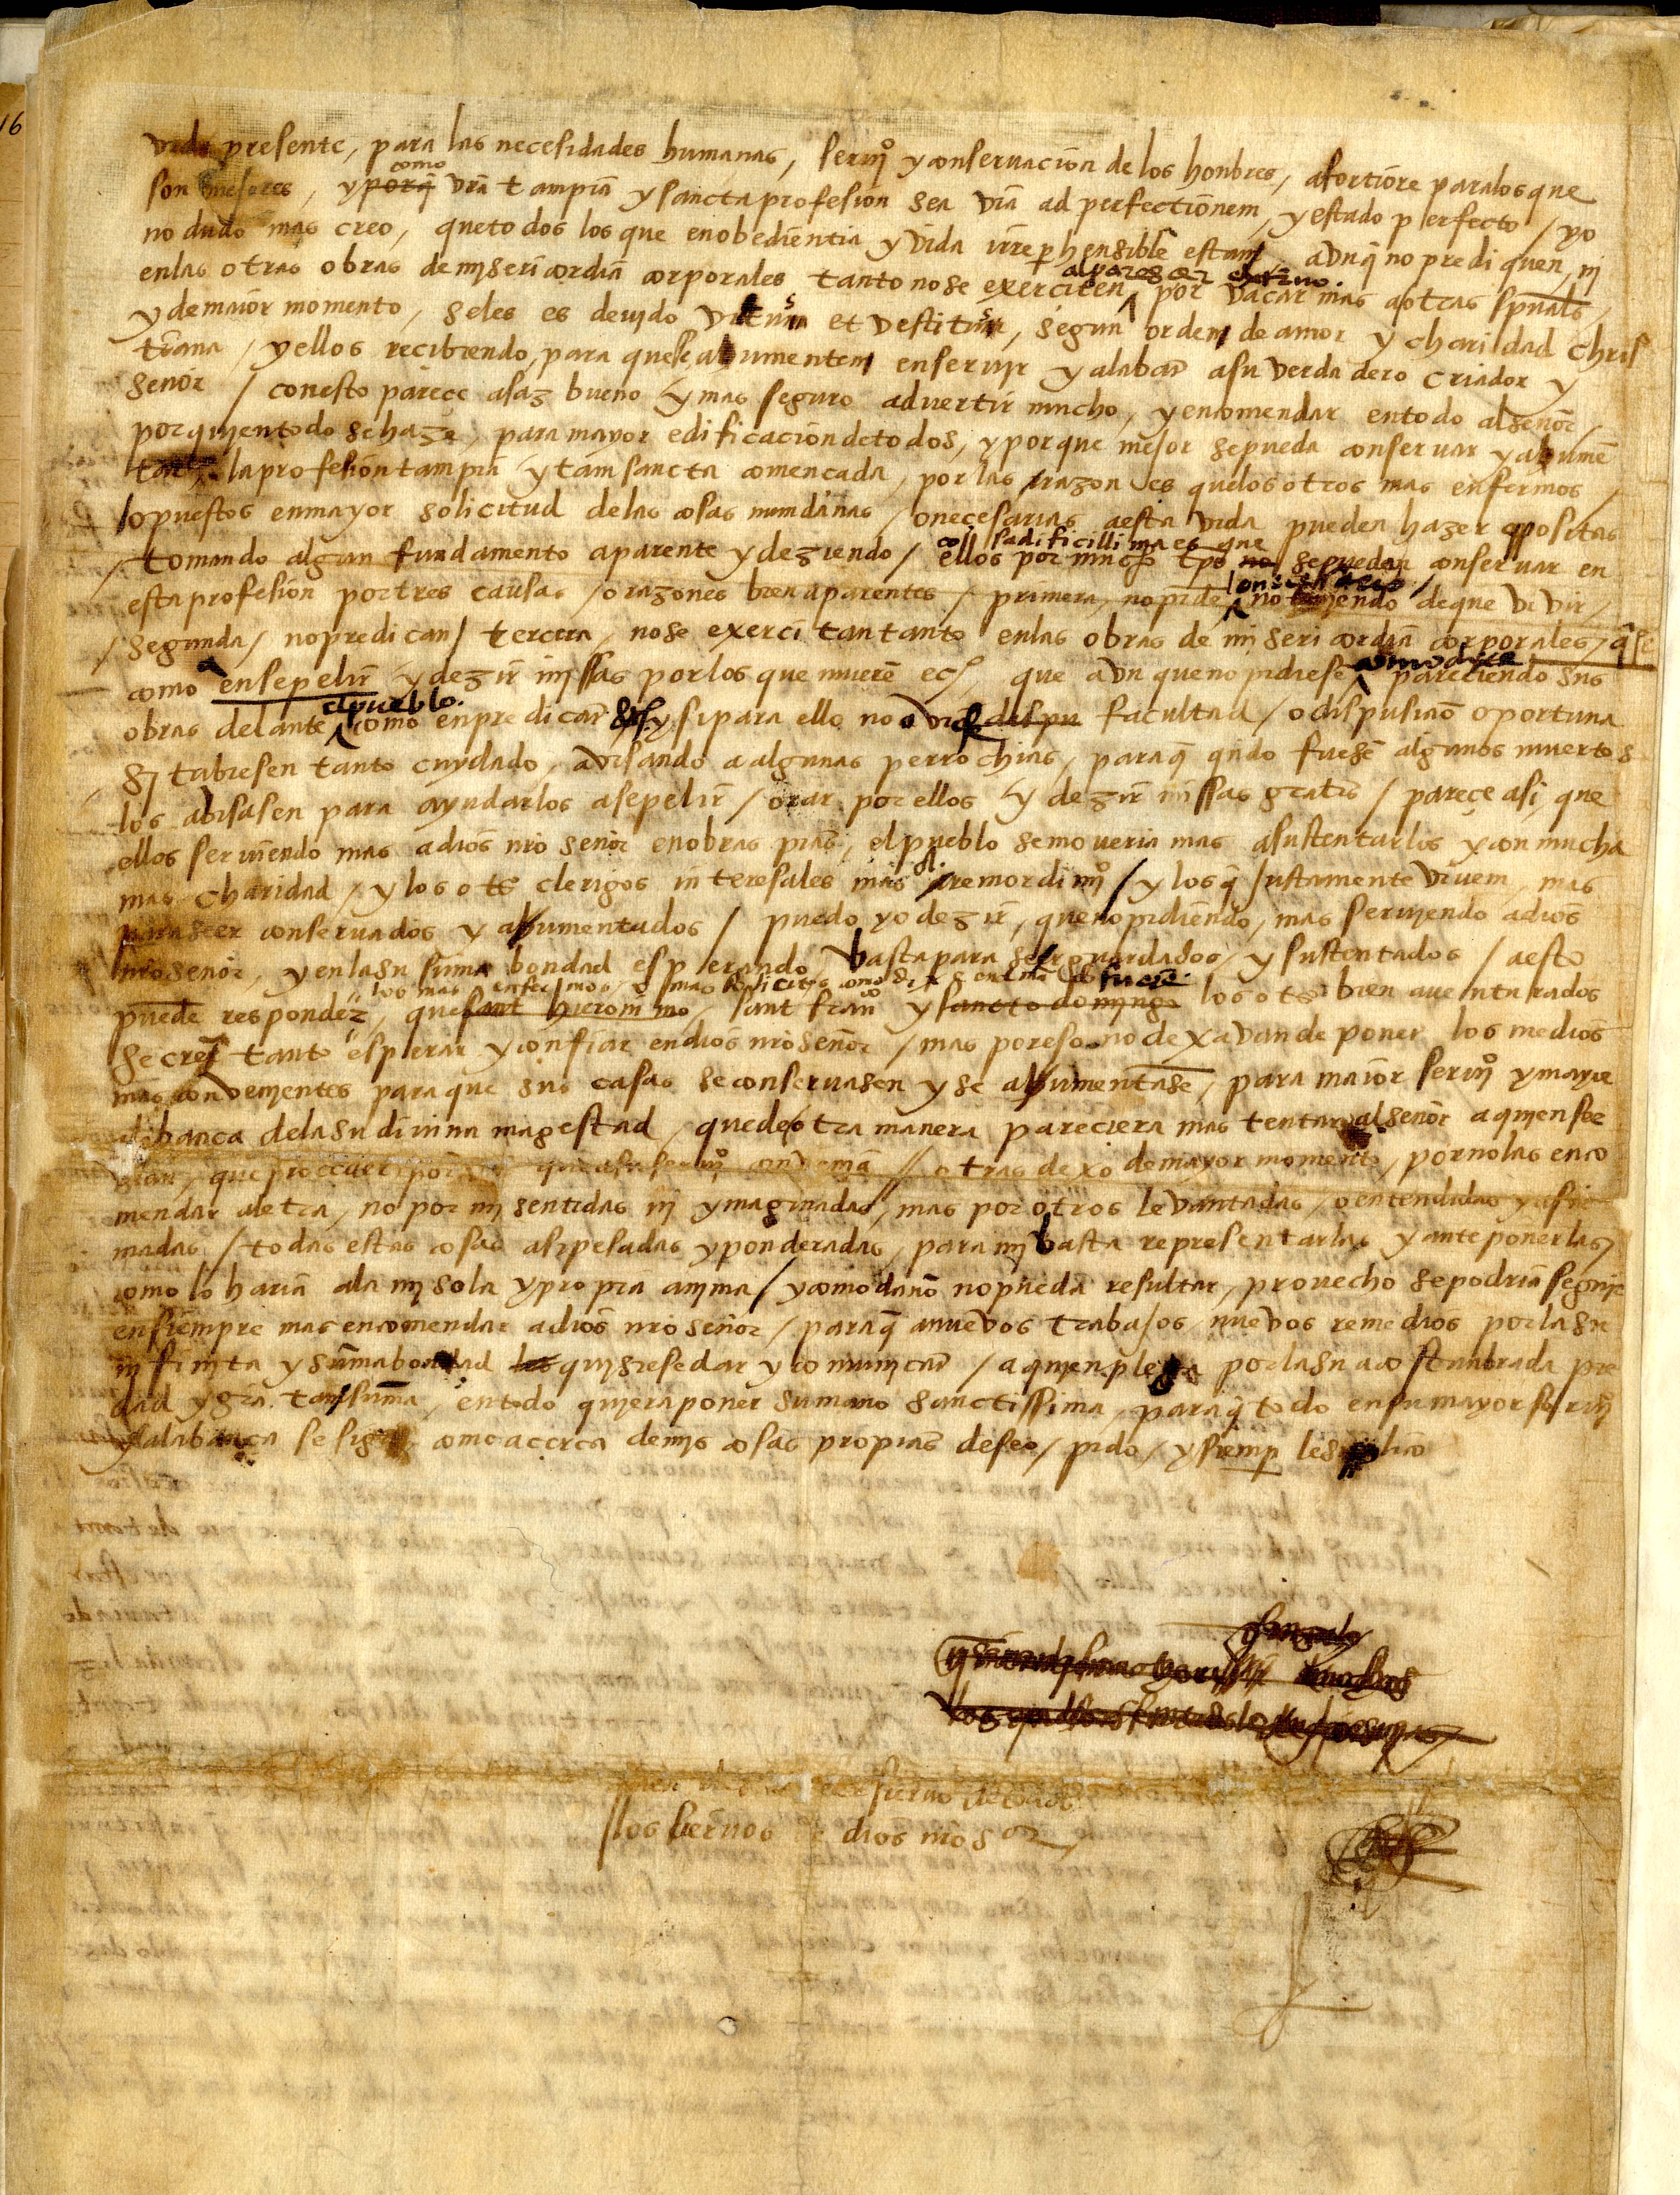 16
vida presente, para las necesidades humanas, seruiº y conseruaçion de los honbres, a fortiore para los que
como
son mejores, y porq̄ vr̃a tam pia y sancta profesion sea via ad perfectionem, y estado perfecto / yo
no dudo mas creo, que todos los que en obedientia y vida irreprehensible estam, avnq̄ no prediquen, nj
al pareser externo.
en las otras obras de misericordia corporales tanto no se exerciten, por vacar mas a otras spūals,
y de maior momento, se les es deuido victus et vestitus, segun orden de amor y charidad chris
tiana / y ellos recibiendo, para que se aumenten en seruir y alabar a su verdadero criador y
señor / con esto pareçe asaz bueno y mas seguro aduertir mucho, y encomendar en todo al señor,
por quien todo se haze, para mayor edificacion de todos, y porque mejor se pueda conseruar y aumē
tar, la profesion tam pia y tam sancta comencada, por las razones que los otros mas enfermos
o puestos en mayor solicitud de las cosas mundanas / o necesarias a esta vida pueden hazer opositas
cosa dificillima es que
/ tomando algun fundamento aparente y deziendo / ellos por mucho tpō no se puedan conseruar en
esta profesion por tres causas / o razones bien aparentes / primera, no piden no teniendo de que viuir /
/ segunda / no predican / tercera, no se exercitan tanto en las obras de misericordia corporales, q̄si
como en sepelir y dezir missas por los que muerē ec, que avn que no pidiese como dixe pareciendo sus
el pueblo.
obras delante como en predicar si para ello no facultad / o dispusiciō oportuna
si tubiesen tanto cuydado, avisando a algunas perrochias, paraq̄ qn̄do fuesē algunos muertos
los abisasen para ayudarlos a sepelir / orar por ellos y dezir missas gratis / pareçe asi, que
ellos seruiendo mas a dios nr̄o señor en obras pias, el pueblo se moueria mas a sustentarlos y con mucha
mas charidad / y los ots clerigos interesales mas a remordimiº / y los q̄ justamente viuem, mas
para ser conseruados y aumentados / puedo yo dezir, que no pidiendo, mas seruiendo a dios
nr̄o señor, y en la su suma bondad esperando basta para ser guardados y sustentados / a esto
los mas enfermos o mas solicitos como dixe en lo mundano fuere
puede responder, que sant hieronimo, sant franco y sancto domingo los ots bien auenturados
se cree tanto esperar y confiar en dios nr̄o señor / mas por eso no dexavan de poner los medios
mas convenjentes para que sus casas se conseruasen y se aumentase, para maior seruiº y mayor
alabança de la su diuina magestad, que de otra manera pareciera mas tentar al señor a quien
que proceder por via que a su seruiº convenia // otras dexo de mayor momento, por no las enco
mendar a letra, no por mi sentidas nj ymaginadas, mas por otros levantadas / o entendidas y afir
madas / todas estas cosas asi pesadas y ponderadas, para mj basta representarlas y anteponerlas,
como lo haria a la mj sola y propia anima / y como daño no pueda resultar, prouecho se podria seguir
en siempre mas encomendar a dios nr̄o señor / paraq̄ a nuevos trabajos nuevos remedios por la su
infinita y suma bondad quisiese dar y comunicar / a quien plega por la su acostunbrada pie
dad y gr̄a tan suma, en todo quiera poner su mano sanctissima, paraq̄ todo en su mayor seruiº
y alabança se siga, como acerca de mis cosas propias deseo / pido / y siemp̄ le suplico
ser sieruo de todos
los sieruos de dios nr̄o sor